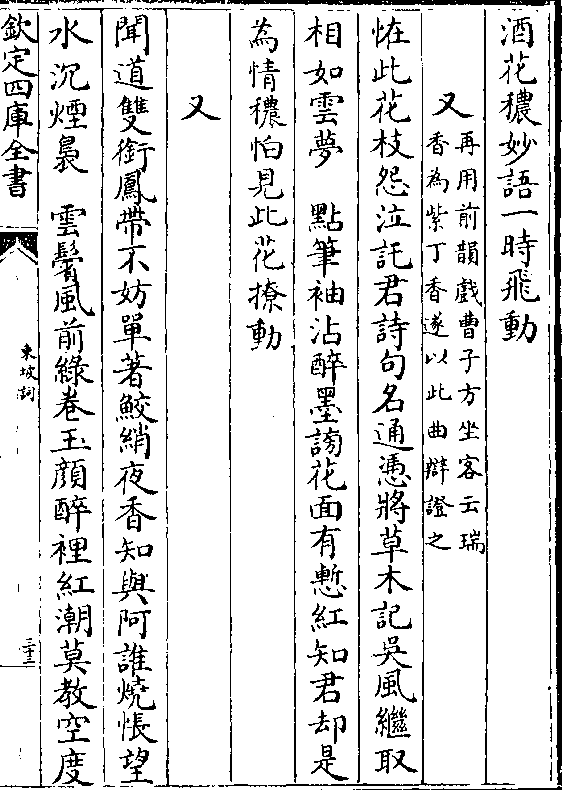 酒花穠妙語一時飛動
又再用前韻戲曹子方坐客云瑞
香為紫丁香遂以此曲辯證之
恠此花枝怨泣託君詩句名通憑將草木記吳風繼取
相如雲夢　點筆袖沾醉墨謗花面有慙紅知君却是
為情穠怕見此花撩動
又
聞道雙銜鳳帶不妨單著鮫綃夜香知與阿誰燒悵望
水沉煙裊　雲鬢風前綠卷玉顔醉裡紅潮莫教空度
欽定四庫全書
東坡詞
三十三